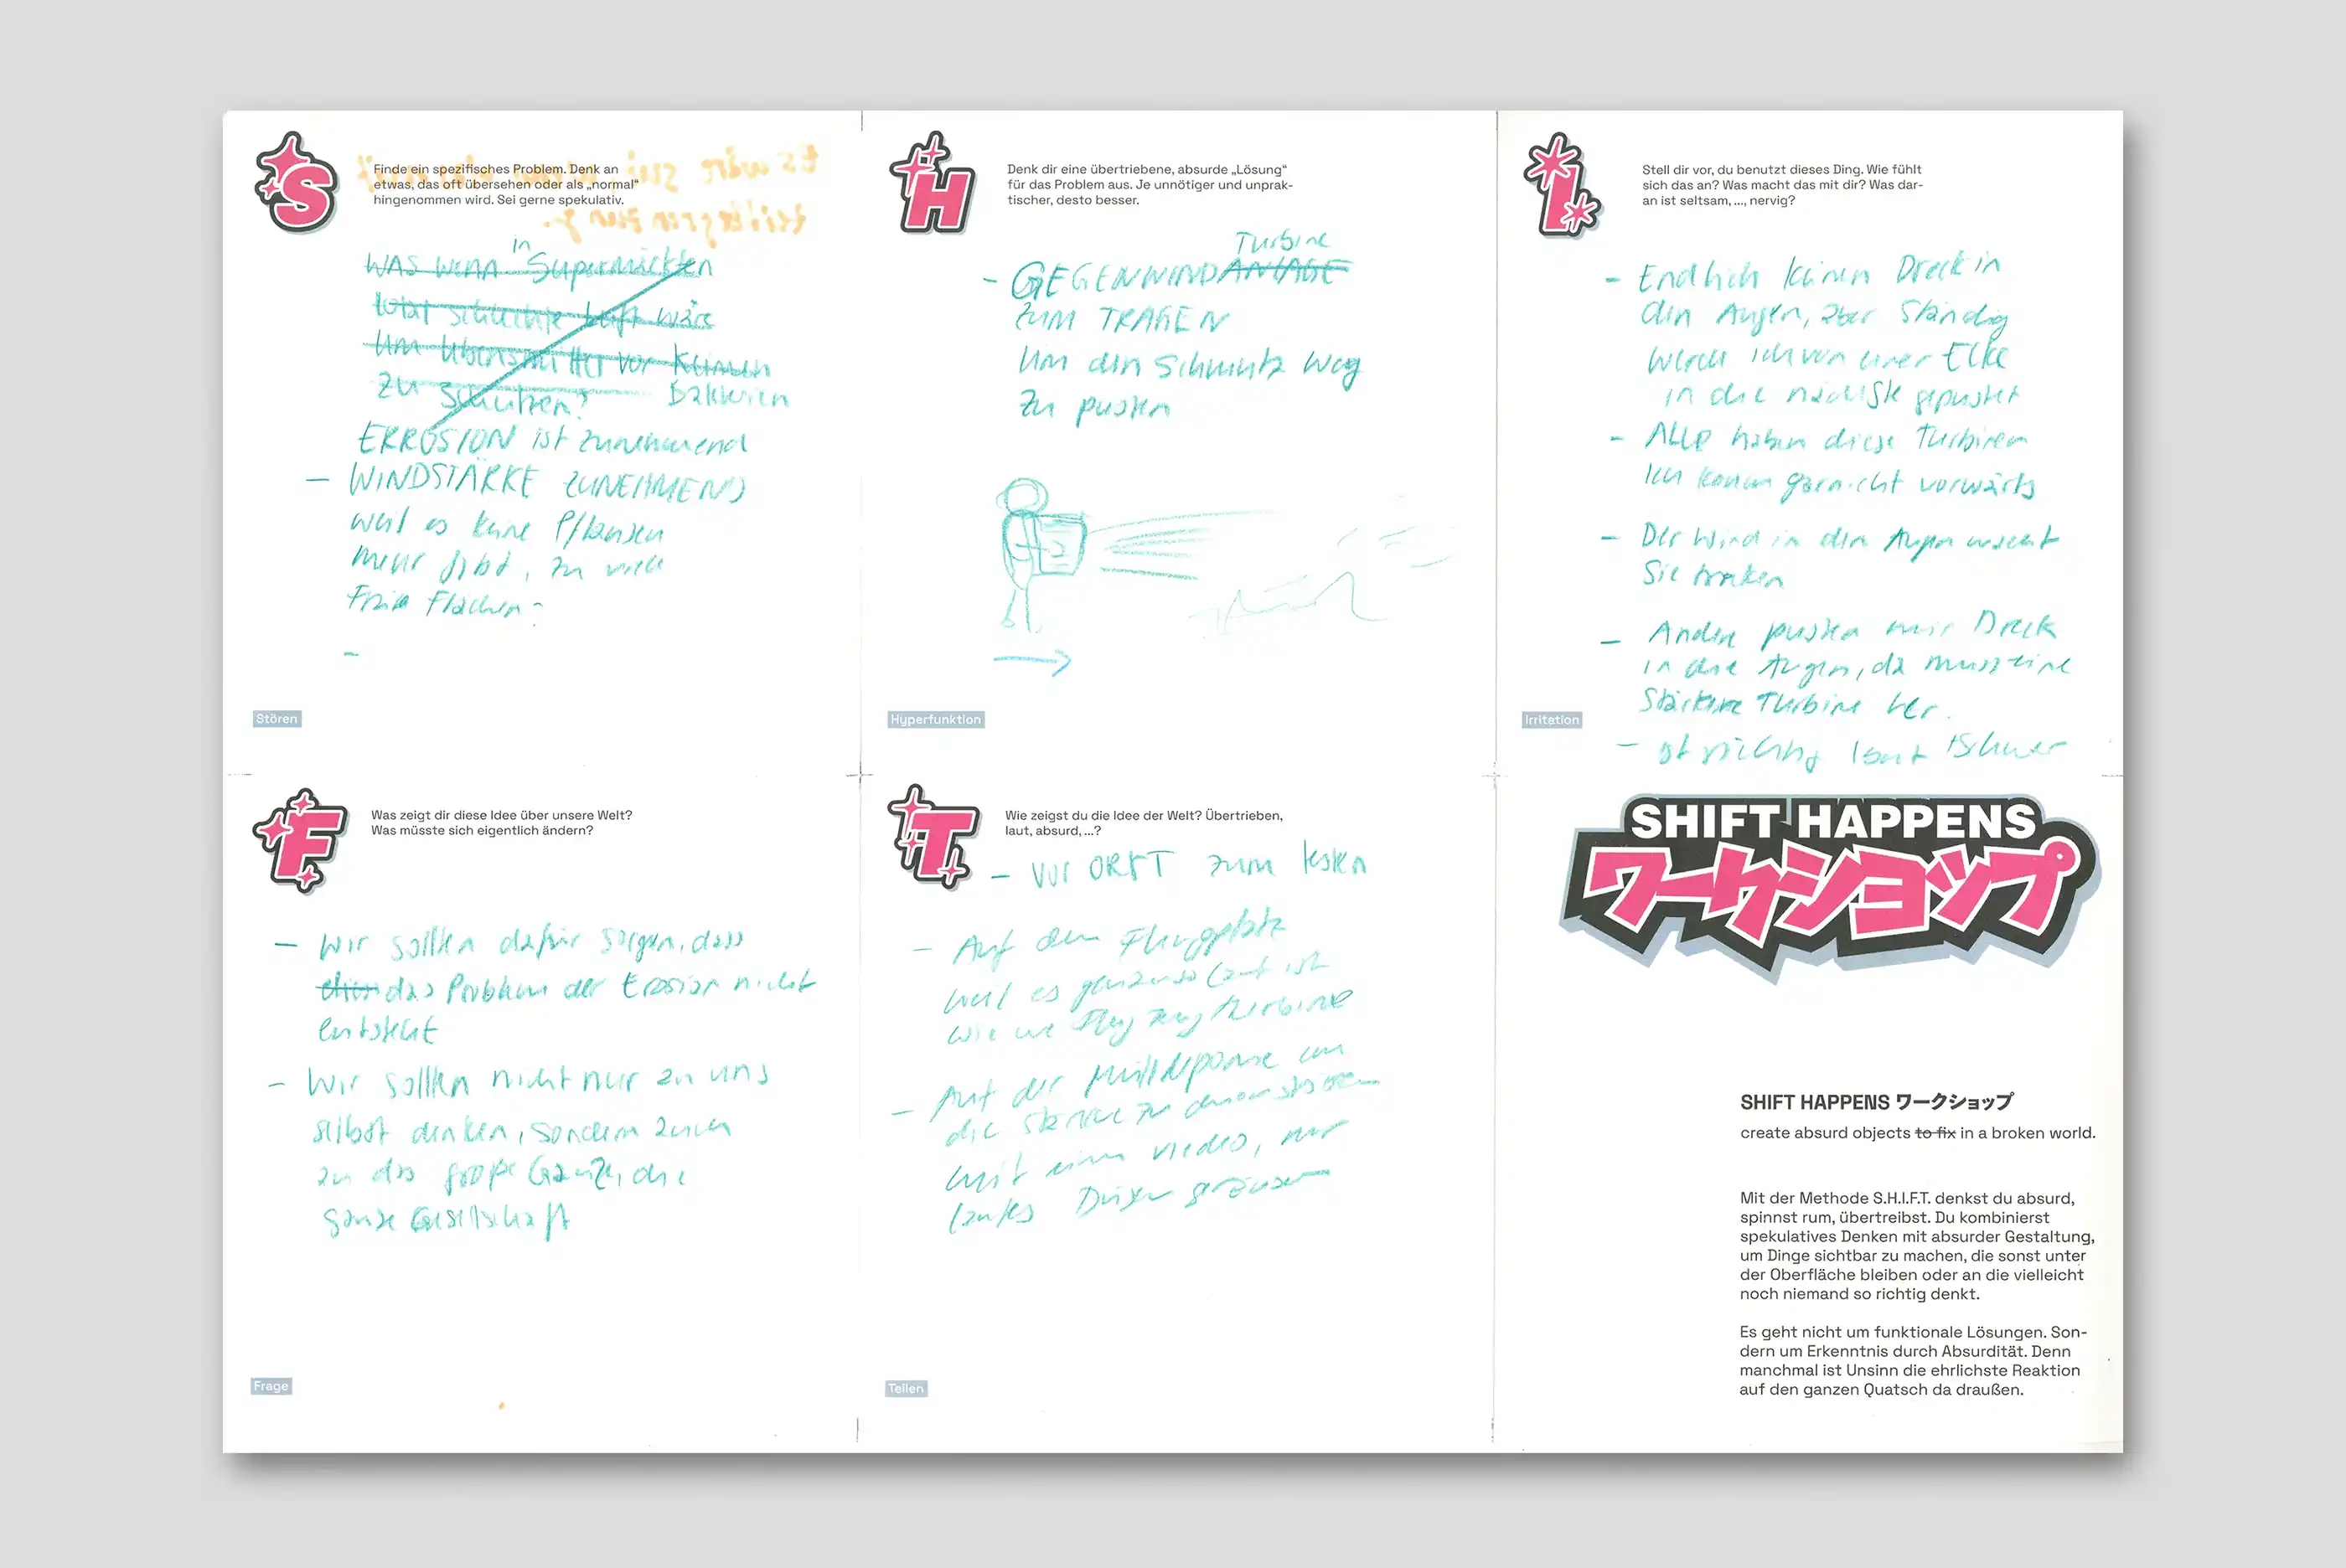 Finde ein spezifisches Problem. Denk an
etwas, das oft übersehen oder als „normal“
hingenommen wird. Sei gerne spekulativ.
in
WAS WENN Supermärkten
total schlechte Luft wäre
Um Lebensmittel vor Keimen
zu schützen? Bakterien
ERROSION ist zunehmend
– WINDSTÄRKE ZUNEHMEND
weil es keine Pflanzen
mehr gibt, zu viele
Freie Flächen-
–
Stören
Denk dir eine übertriebene, absurde „Lösung“
für das Problem aus. Je unnötiger und unprak-
tischer, desto besser.
Turbine
– GEGENWINDANLAGE
ZUM TRAGEN
Um den Schmutz weg
zu pusten
Hyperfunktion
Stell dir vor, du benutzt dieses Ding. Wie fühlt
sich das an? Was macht das mit dir? Was dar-
an ist seltsam, ..., nervig?
– Endlich keinen Dreck in
den Augen, aber Ständig
werde ich von einer Ecke
in die nächste gepustet
– ALLE haben diese Turbinen
Ich komm garnicht vorwärts
– Der Wind in den Augen macht
Sie trocken
– Andere pusten mir Dreck
in die Augen, da muss eine
Stärkere Turbine her.
– ist richtig laut + Schwer
Irritation
Was zeigt dir diese Idee über unsere Welt?
Was müsste sich eigentlich ändern?
– Wir sollten dafür sorgen, dass
das Problem der Erosion nicht
entsteht
– Wir sollten nicht nur an uns
selbst denken, sondern auch
an das große Ganze, die
ganze Gesellschaft
Frage
Wie zeigst du die Idee der Welt? Übertrieben,
laut, absurd, ...?
– vor ORT zum testen
– Auf dem Flugplatz
weil es genauso laut ist
wie ne Flugzeug turbine
– Auf der Mülldeponie um
die Stärke zu demonstrieren
mit einem video, nur
lautes Düsen geräusch
Teilen
SHIFT HAPPENS
ワークショップ
SHIFT HAPPENS ワークショップ
create absurd objects to fix in a broken world.
Mit der Methode S.H.I.F.T. denkst du absurd,
spinnst rum, übertreibst. Du kombinierst
spekulatives Denken mit absurder Gestaltung,
um Dinge sichtbar zu machen, die sonst unter
der Oberfläche bleiben oder an die vielleicht
noch niemand so richtig denkt.
Es geht nicht um funktionale Lösungen. Son-
dern um Erkenntnis durch Absurdität. Denn
manchmal ist Unsinn die ehrlichste Reaktion
auf den ganzen Quatsch da draußen.